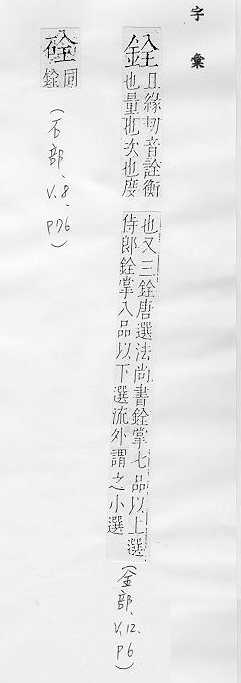 字彙
銓
且緣切音詮衡
也量也次也度
也又三銓唐選法尚書銓掌七品以上選
侍郎銓掌八品以下選流外謂之小選
(金部、V.12. P6)
硂
同
銓
(石部、V.8. P76)